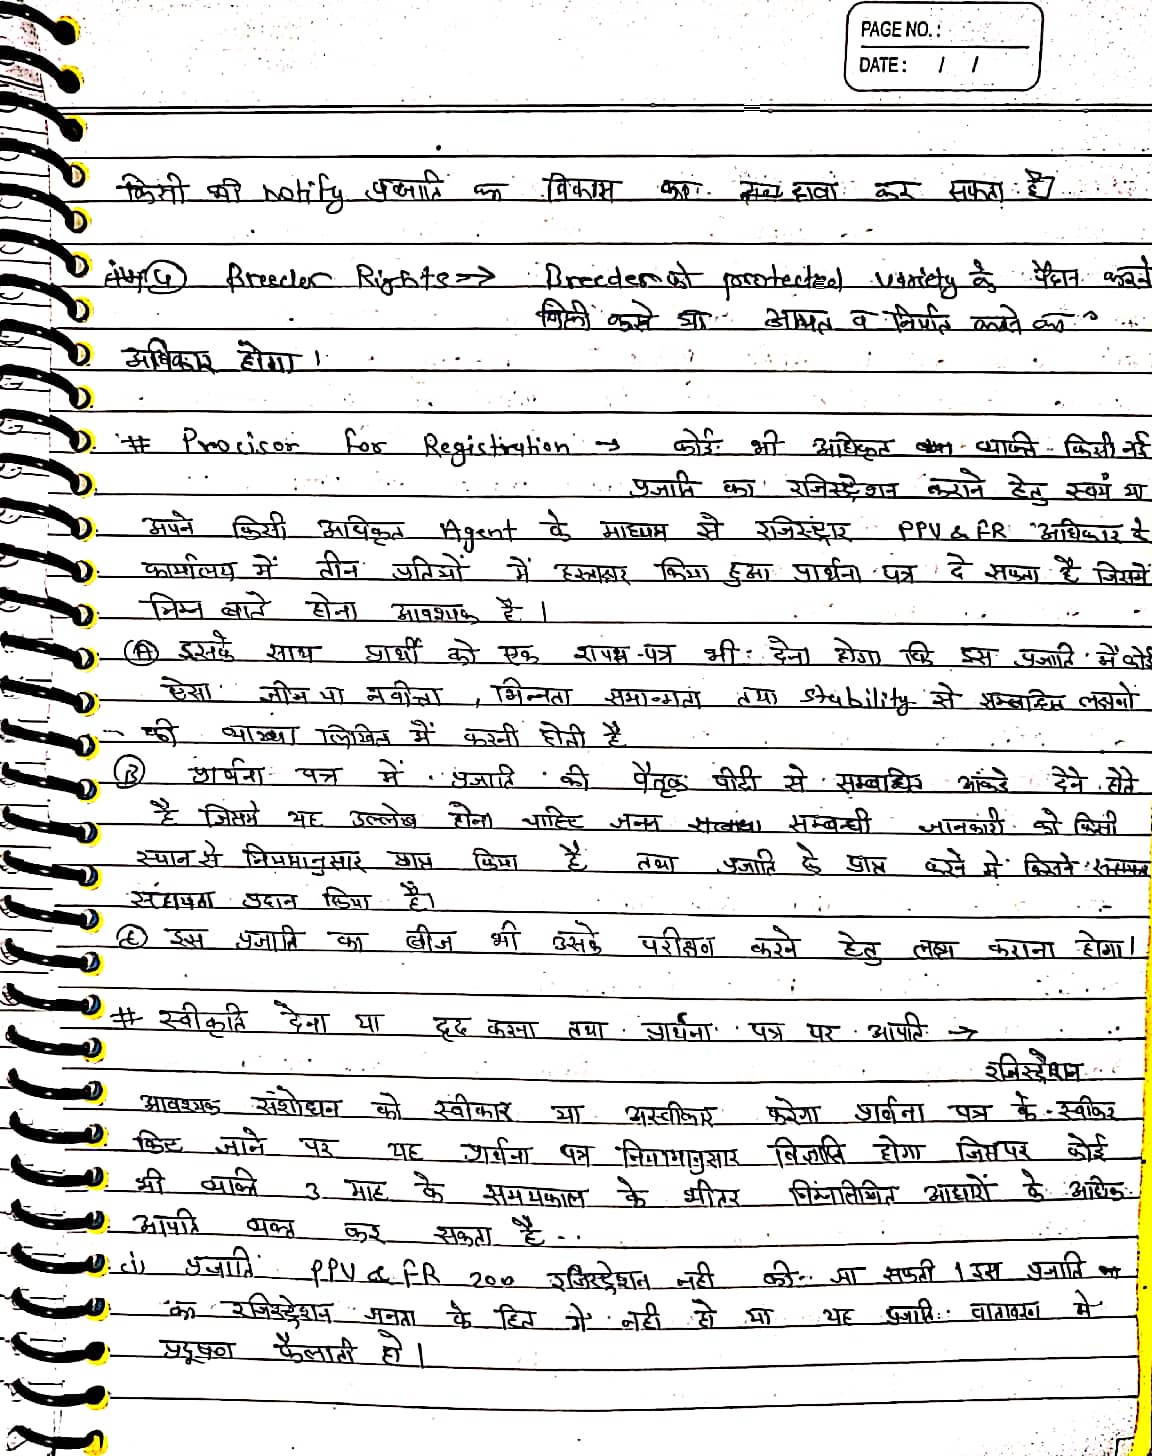 PAGE NO.:
DATE: / /
किसी भी notify प्रजाति का विकास कर दावा कर सकता है।
Breeder Rights => Breeder को protected variety के पैदा करने
बिक्री करने या आयात व निर्यात करने का
अधिकार होगा।
# Procisor for Registration → कोई भी अधिकृत व्यक्ति किसी नई
प्रजाति का रजिस्ट्रेशन कराने हेतु स्वयं या
अपने किसी अधिकृत Agent के माध्यम से रजिस्ट्रार PPV & FR अधिकार के
कार्यालय में तीन प्रतियों में हस्ताक्षर किया हुआ प्रार्थना पत्र दे सकता है जिसमें
निम्न बाते होना आवश्यक है।
(A) इसके साथ प्रार्थी को एक शपथ-पत्र भी देना होगा कि इस प्रजाति में कोई
ऐसा जीन या नवीनता, भिन्नता समानता तथा stability से सम्बन्धित लक्षणों
की व्याख्या लिखित में करनी होती है
(B) प्रार्थना पत्र में प्रजाति की पैतृक पीढी से सम्बन्धित आंकडे देने होते
है जिसमे यह उल्लेख होना चाहिए सम्बन्धी जानकारी को किसी
स्थान से नियमानुसार प्राप्त किया है तथा प्रजाति के प्राप्त करने में किसने
सहायता प्रदान किया है।
इस प्रजाति का बीज भी उसके परीक्षण करने हेतु लक्ष्य कराना होगा।
# स्वीकृति देना या रद्द करना तथा प्रार्थना पत्र पर आपति →
रजिस्ट्रेशन
आवश्यक संशोधन को स्वीकार या अस्वीकार करेगा प्रार्थना पत्र के स्वीकर
किए जाने पर यह प्रार्थना पत्र नियमानुसार विज्ञाति होगा जिसपर कोई
भी व्यक्ति 3 माह के समयकाल के भीतर निम्नलिखित आधारों के अधिक
आपति व्यक्त कर सकता है
(i) प्रजाति PPV & FR 200 रजिस्ट्रेशन नही की जा सकती। इस प्रजाति
का रजिस्ट्रेशन जनता के हित में नही हो या यह प्रजाति वातावरण मे
प्रदूषण फैलाती हो।